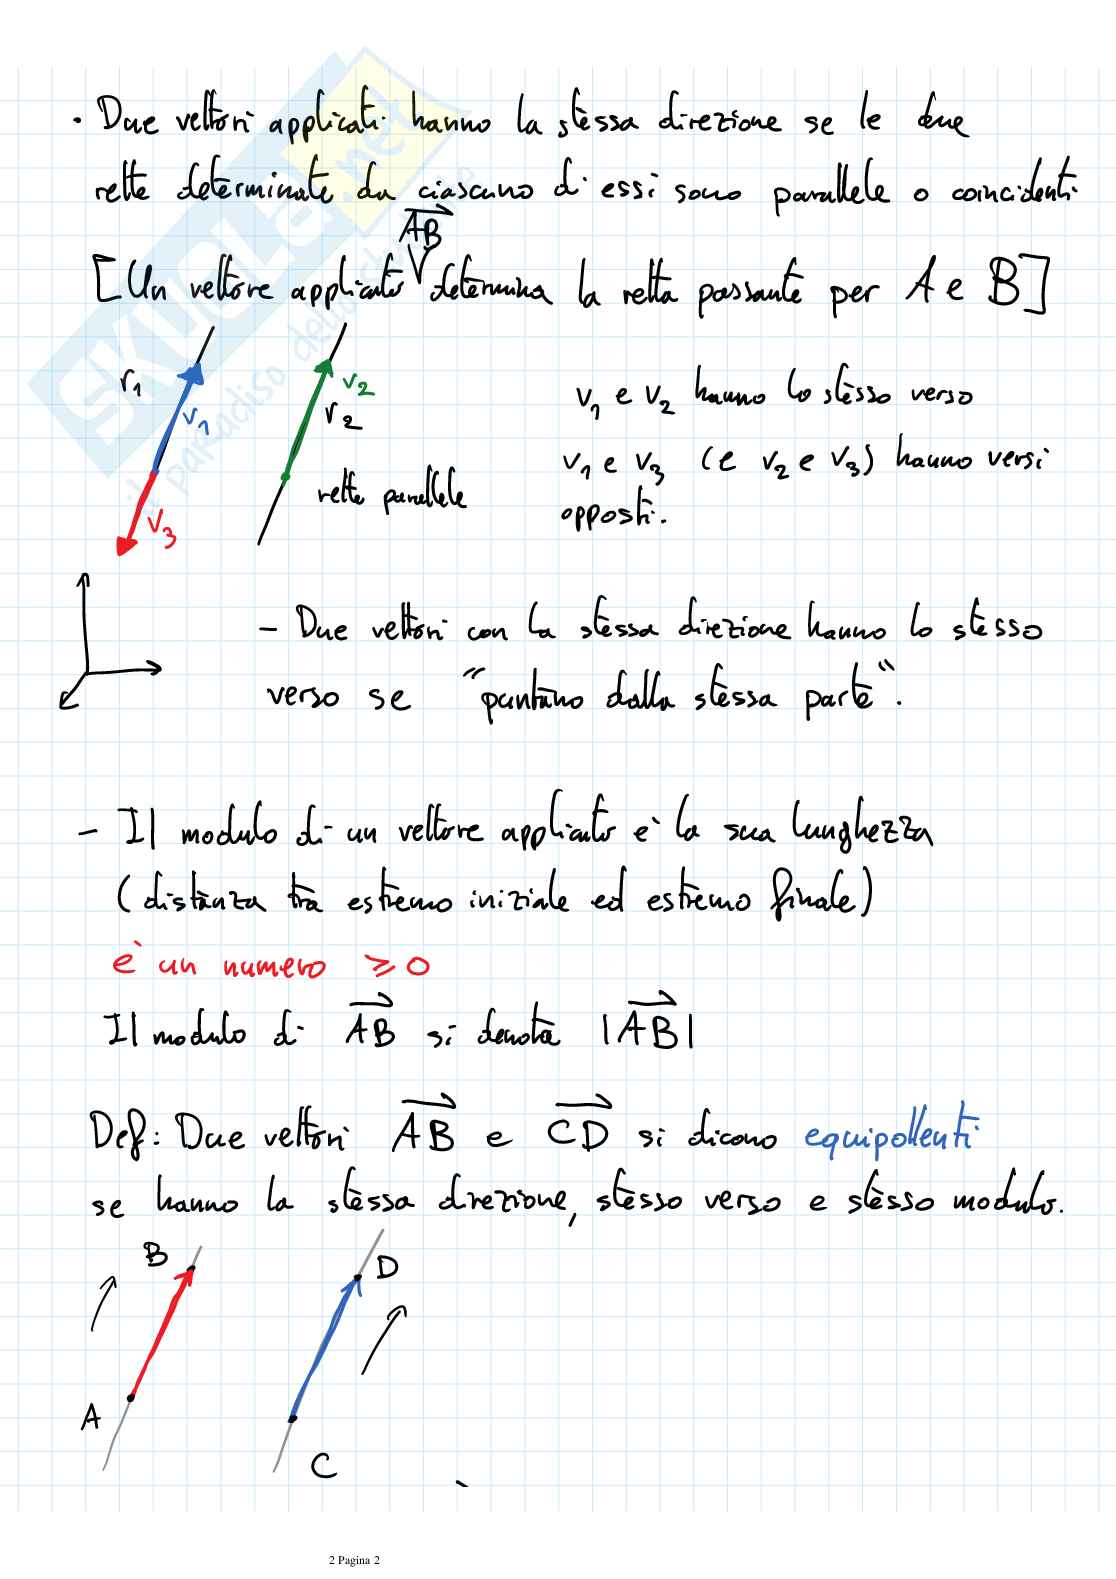 • Due vettori applicati hanno la stessa direzione se le due
rette determinate da ciascuno di essi sono parallele o coincidenti
AB
[Un vettore applicato V determina la retta passante per A e B]
r1
v1
v2
r2
v3
rette parallele
v1 e v2 hanno lo stesso verso
v1 e v3 (e v2 e v3) hanno versi
opposti.
- Due vettori con la stessa direzione hanno lo stesso
verso se "puntano dalla stessa parte".
- Il modulo di un vettore applicato è la sua lunghezza
(distanza tra estremo iniziale ed estremo finale)
è un numero ≥ 0
Il modulo di AB si denota |AB|
Def: Due vettori AB e CD si dicono equipollenti
se hanno la stessa direzione, stesso verso e stesso modulo.
B
D
A
C
2 Pagina 2
SKUOLA.net
il paradiso dello